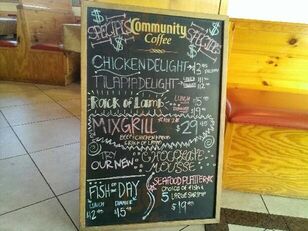 SPECIALS Community SPECIALS
Coffee
CHICKEN DELIGHT
TILAPIA DELIGHT
Rack of Lamb LUNCH
DINNER
MIX GRILL $29.95
RACK OF LAMB
TRY
OUR NEW: CHOCOLATE
MOUSSE
SEAFOOD PLATTER
FISH OF DAY CHOICE OF FISH &
LUNCH DINNER 5 LARGE SHRIMP
$12.95 $15.95 $19.95